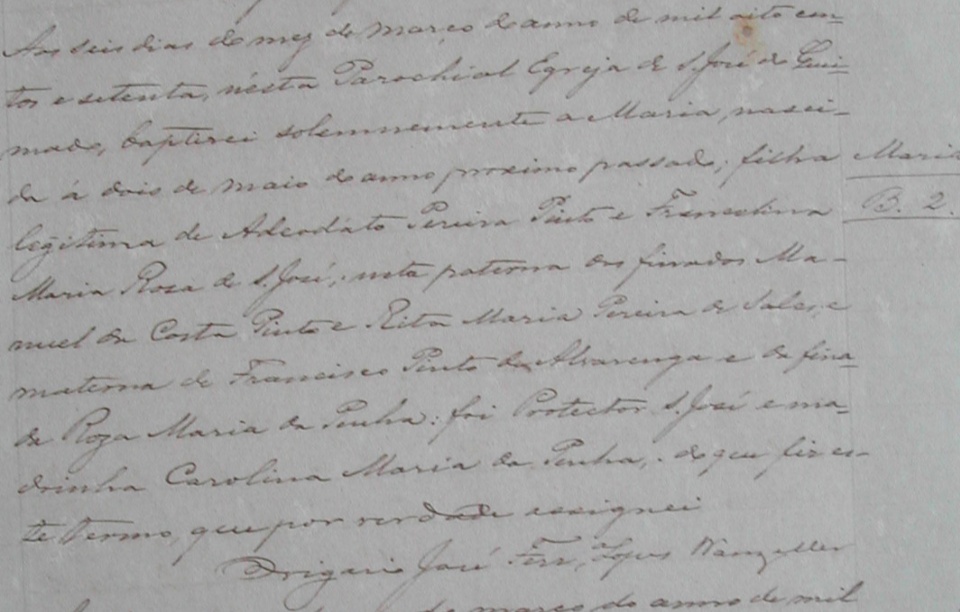 Aos seis dias do mez de março do anno de mil oito cen=
tos e setenta, nésta Parochial Egreja de S. José do Quei=
mado, baptizei solemnemente a Maria, nasci-
da á dois de maio do anno proximo passado; filha
legitima de Adeodáto Pereira Pinto e Francelina
Maria Rosa de S. José; neta paterna dos finados Ma-
nuel da Costa Pinto e Rita Maria Pereira de Sales, e
materna de Francisco Pinto de Alvarenga e da fina=
da Roza Maria da Penha: foi Protector S. José e ma=
drinha Carolina Maria da Penha; do que fiz es-
te termo, que por verdade assignei
O vigario José Ferr.ª Lopes Wanzeller
Maria
B. 2.
de março do anno de mil